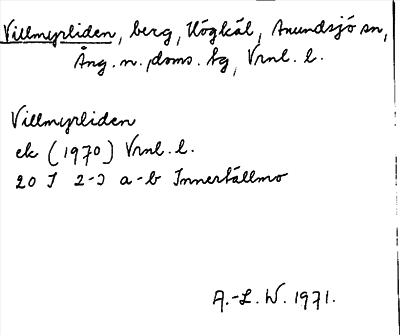 Villmyrliden, berg, Högkål, Anundsjö sn,
Ång. n. doms. hg, Vrnl. l.
Villmyrliden
ek (1970) Vrnl. l.
20 J 2-3 a-b Innertällmo
A.-L. W. 1971.